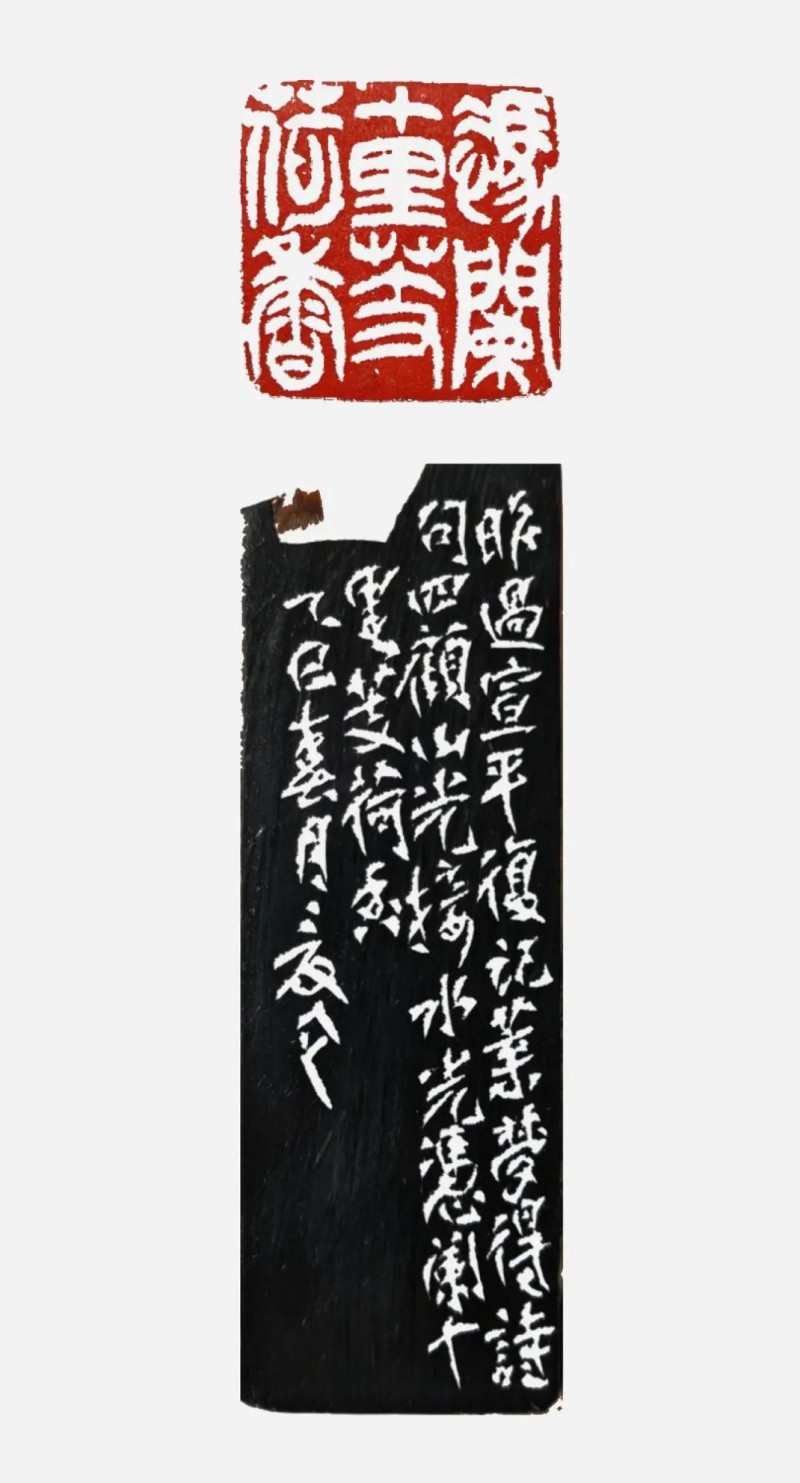 闌
十里芰
荷香
昨過宣平復記葉夢得詩
句四顧山光接水光憑闌十
里芰荷香
乙巳春月